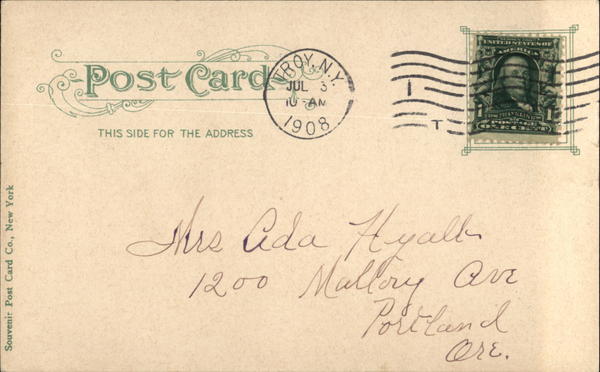 Post Card
THIS SIDE FOR THE ADDRESS
TROY, N.Y.
JUL 3
10 AM
1908
1
T
UNITED STATES OF AMERICA
1 1
ONE CENT
Mrs Ada Hyatt
1200 Mallory Ave
Portland
Ore.
Souvenir Post Card Co., New York